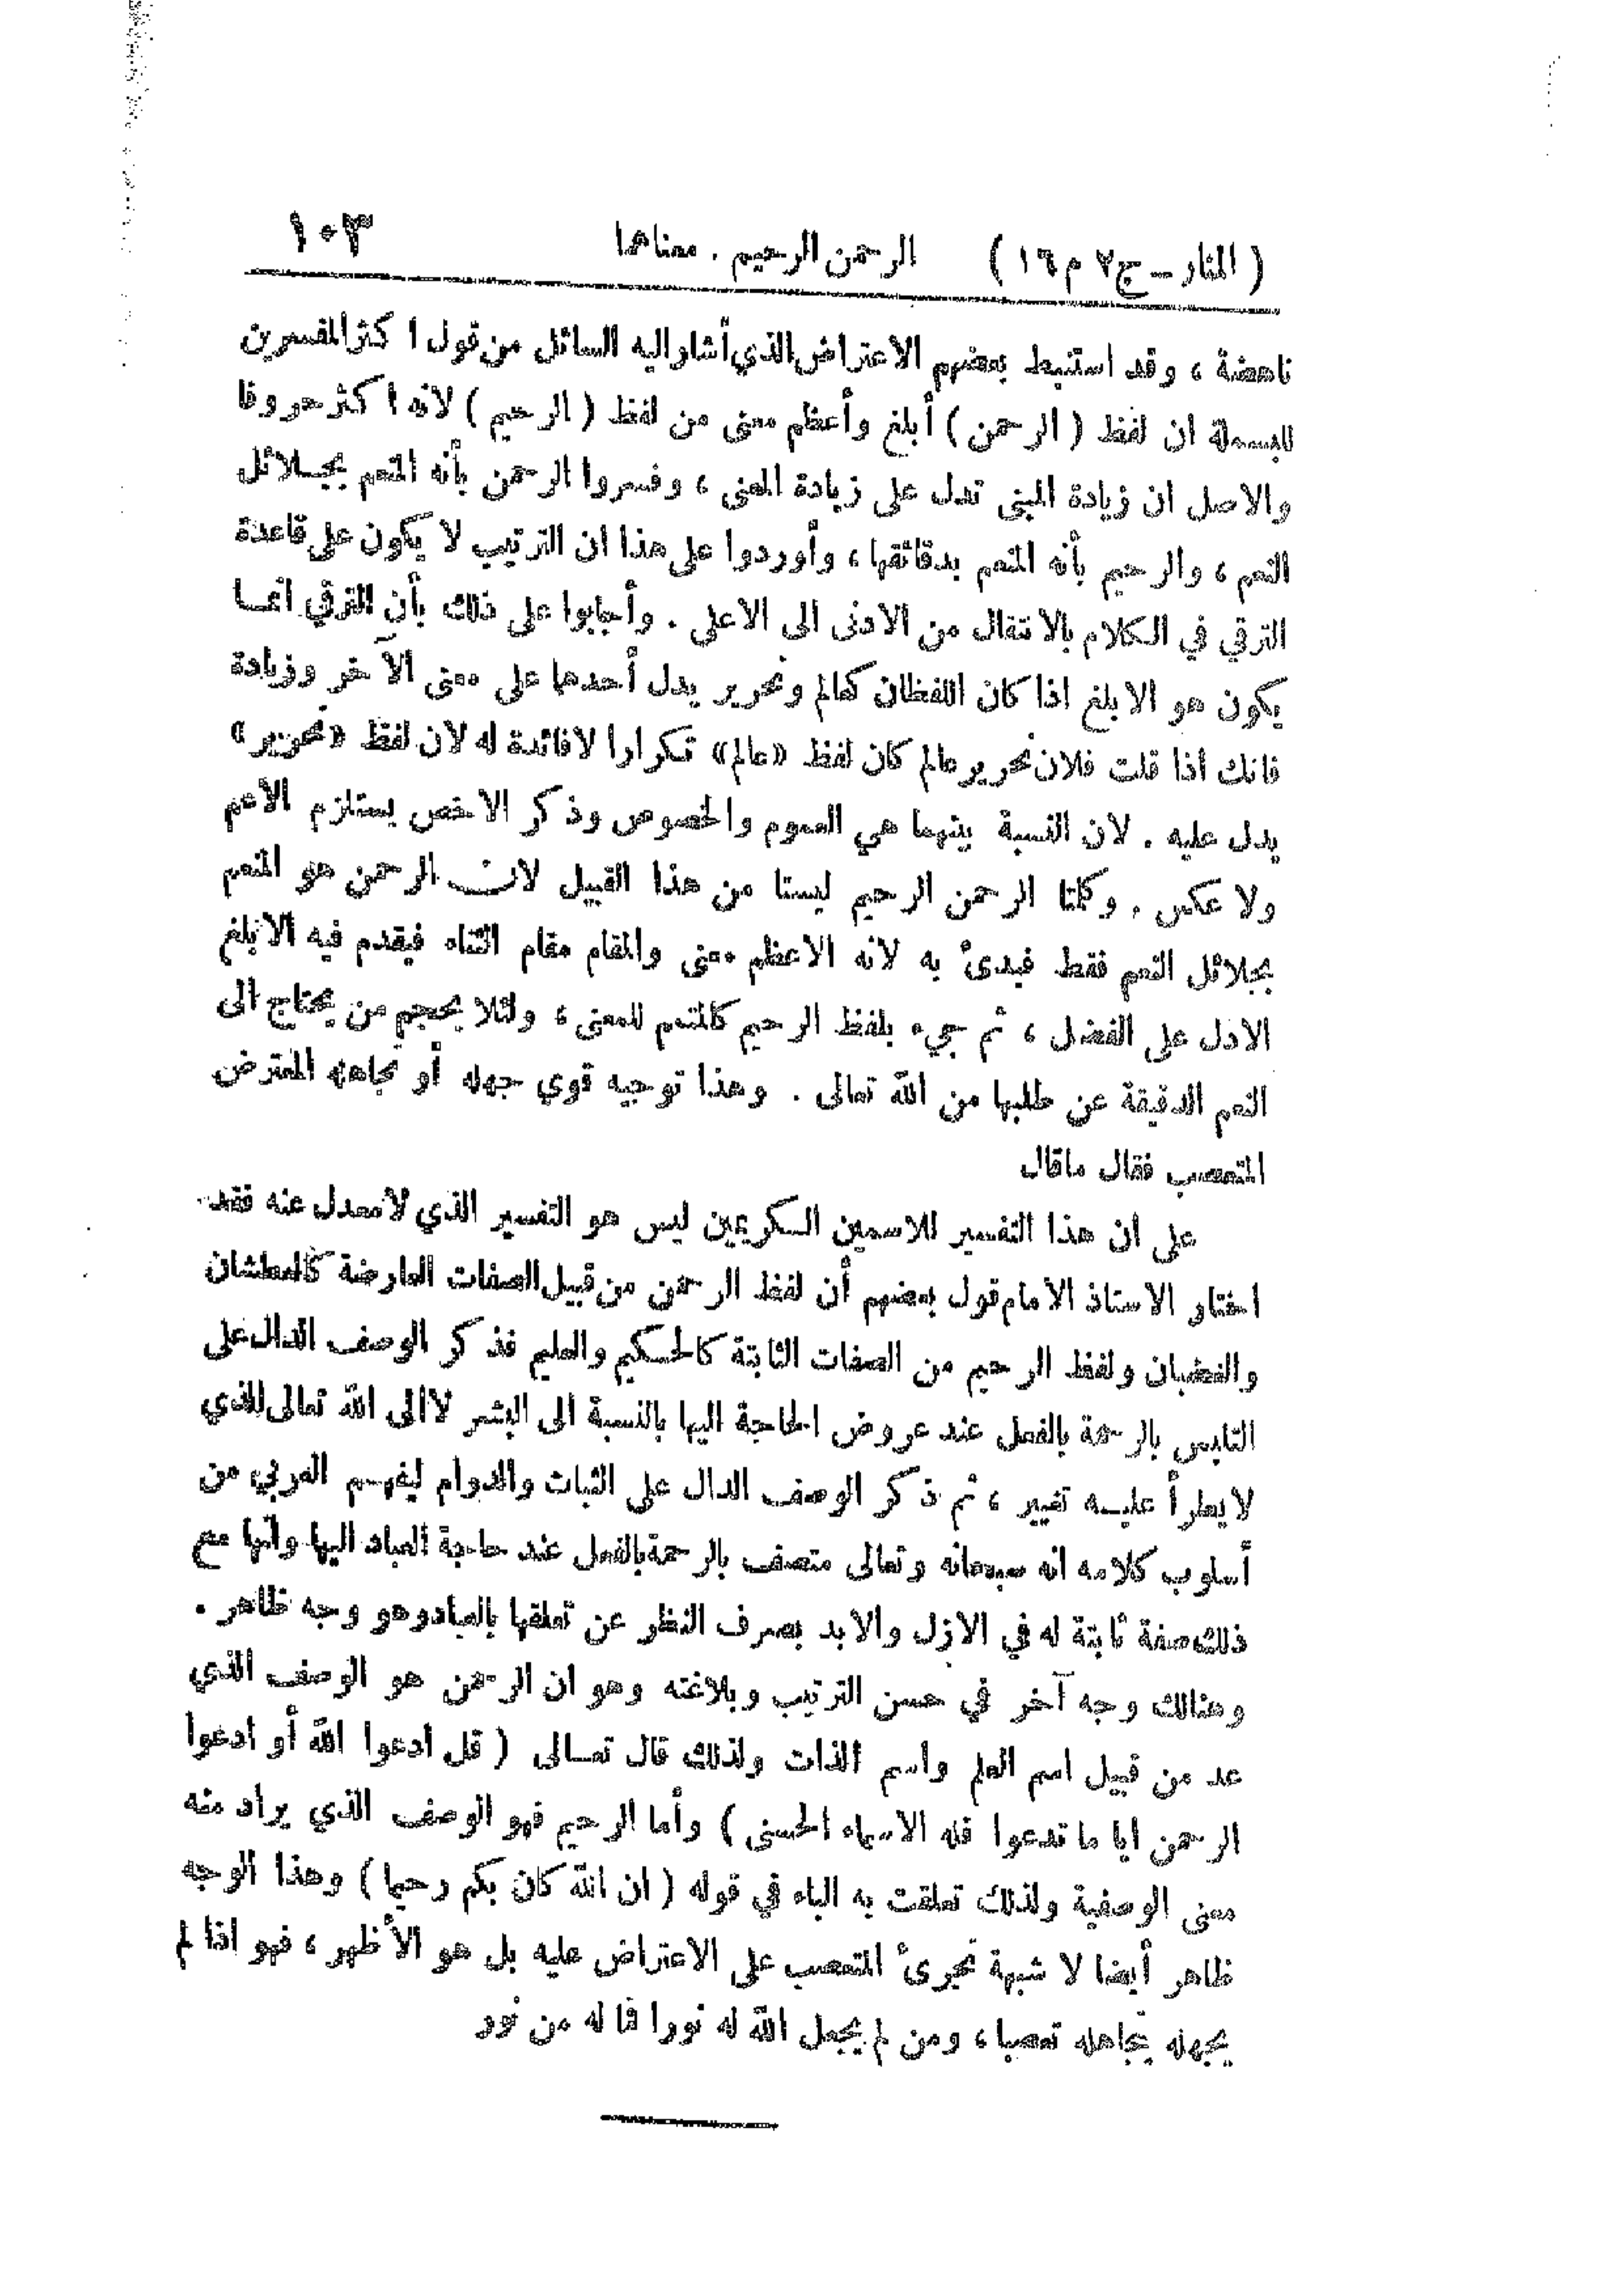 (المنار ـ ج٢ م١٦) الرحمن الرحيم . معناها ١٠٣
ناهضة ، وقد استنبط بعضهم الاعتراض الذي أشار اليه السائل من قول أكثر المفسرين
للبسملة ان لفظ ( الرحمن ) أبلغ وأعظم معنى من لفظ ( الرحيم ) لانه أكثر حروفا
والاصل ان زيادة المبنى تدل على زيادة المعنى ، وفسروا الرحمن بأنه المنعم بجلائل
النعم ، والرحيم بأنه المنعم بدقائقها ، وأوردوا على هذا ان الترتيب لا يكون على قاعدة
الترقي في الكلام بالانتقال من الادنى الى الاعلى . وأجابوا على ذلك بأن الترقي انما
يكون هو الابلغ اذا كان اللفظان كعالم ونحرير يدل أحدهما على معنى الآخر وزيادة
فانك اذا قلت فلان نحرير عالم كان لفظ «عالم» تكرارا لا فائدة له لان لفظ «نحرير»
يدل عليه . لان النسبة بينهما هي العموم والخصوص وذكر الاخص يستلزم الاعم
ولا عكس . وكلتا الرحمن الرحيم ليستا من هذا القبيل لان الرحمن هو المنعم
بجلائل النعم فقط فبدئ به لانه الاعظم معنى والمقام مقام الثناء فيقدم فيه الابلغ
الادل على الفضل ، ثم جيء بلفظ الرحيم كالمتمم للمعنى ، ولئلا يحجم من يحتاج الى
النعم الدقيقة عن طلبها من الله تعالى . وهذا توجيه قوي جهله أو تجاهله المعترض
المتعصب فقال ماقال
على ان هذا التفسير للاسمين الكريمين ليس هو التفسير الذي لامعدل عنه فقد
اختار الاستاذ الامام قول بعضهم أن لفظ الرحمن من قبيل الصفات العارضة كالعطشان
والغضبان ولفظ الرحيم من الصفات الثابتة كالحكيم والعليم فذكر الوصف الدال على
التلبس بالرحمة بالفعل عند عروض الحاجة اليها بالنسبة الى البشر لا الى الله تعالى الذي
لا يطرأ عليه تغيير ، ثم ذكر الوصف الدال على الثبات والدوام ليفهم العربي من
أسلوب كلامه انه سبحانه وتعالى متصف بالرحمة بالفعل عند حاجة العباد اليها وانها مع
ذلك صفة ثابتة له في الازل والابد بصرف النظر عن تعلقها بالعباد وهو وجه ظاهر .
وهنالك وجه آخر في حسن الترتيب وبلاغته وهو ان الرحمن هو الوصف الذي
عد من قبيل اسم العلم واسم الذات ولذلك قال تعالى ( قل ادعوا الله أو ادعوا
الرحمن ايا ما تدعوا فله الاسماء الحسنى ) وأما الرحيم فهو الوصف الذي يراد منه
معنى الوصفية ولذلك تعلقت به الباء في قوله ( ان الله كان بكم رحيما ) وهذا الوجه
ظاهر أيضا لا شبهة تجرئ المتعصب على الاعتراض عليه بل هو الأظهر ، فهو اذا لم
يجهله يتجاهله تعصبا ، ومن لم يجعل الله له نورا فما له من نور